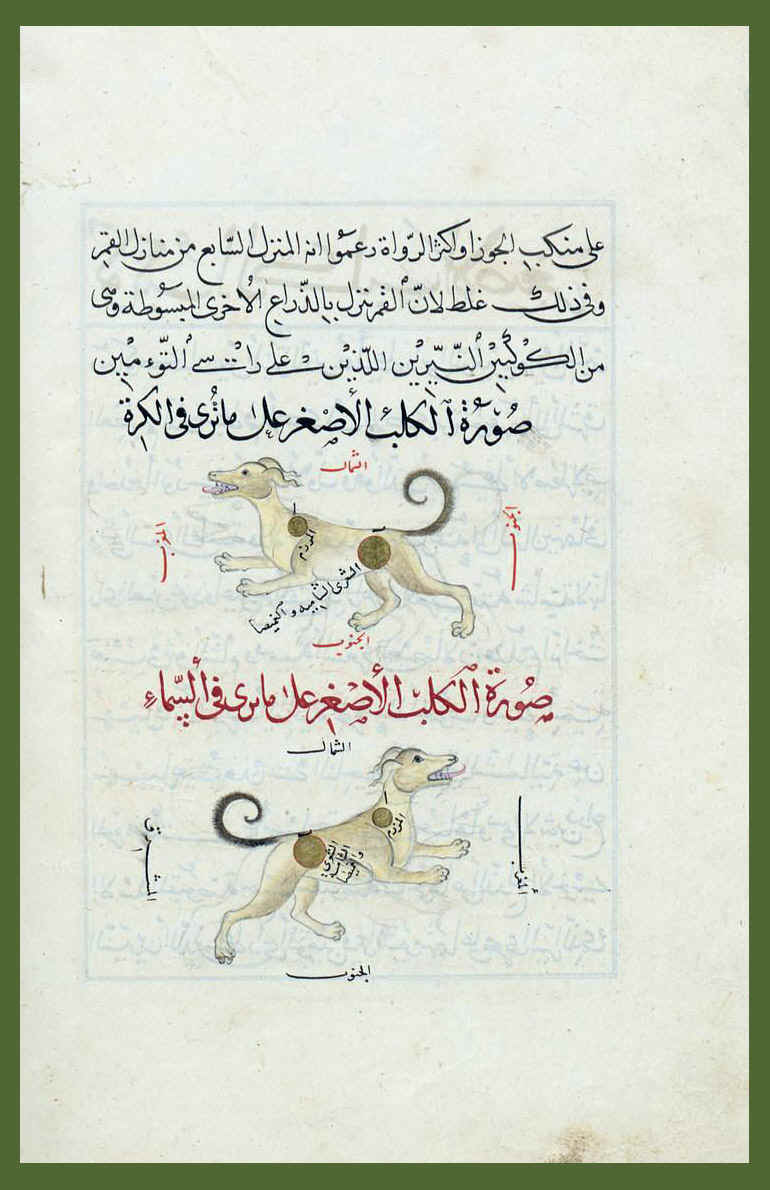 على منكب الجوزا واكثر الرواة زعموا انه المنزل السّابع من منازل القمر
وفى ذلك غلط لانّ ٱلقمر ينزل بالذّراع الأخرى المبسوطة وهى
من الكوكبين ٱلنّيّرين اللّذين على راسى ٱلتّوءمين
صُورَة ٱلكلب الأصْغر على ما تُرى فى الكرة
الشمال
المرزم
الشعرى الشامية والغميصا
الجنوب
صُورَة ٱلكلب الأصْغر على ما يرى فى ٱلسّماء
الشمال
المرزم
الشعرى
الشامية
والغميصا
المشرق
المغرب
الجنوب